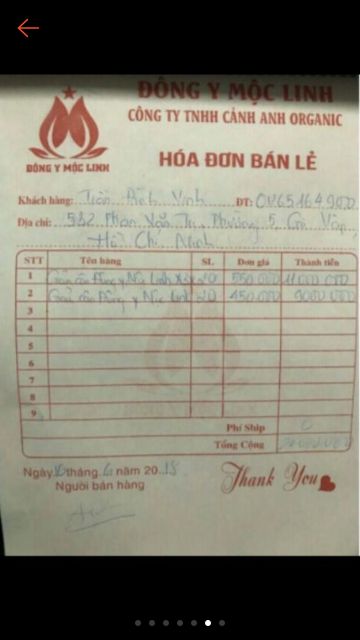 ĐÔNG Y MỘC LINH
CÔNG TY TNHH CẢNH ANH ORGANIC
ĐÔNG Y MỘC LINH
HÓA ĐƠN BÁN LẺ
Khách hàng: Trần Đình Vinh ĐT:
Địa chỉ: 582 Phan Văn Trị, Phường 5, Gò Vấp,
Hồ Chí Minh
STT Tên hàng SL Đơn giá Thành tiền
1 Giảm cân Đông y Mộc Linh 20 550.000 11.000.000
2 Giảm cân Đông y Mộc Linh 20 450.000 9000.000
3
4
5
6
7
8
9
Phí Ship 0
Tổng Cộng
Ngày 16 tháng 6 năm 20 18
Người bán hàng
Thank You